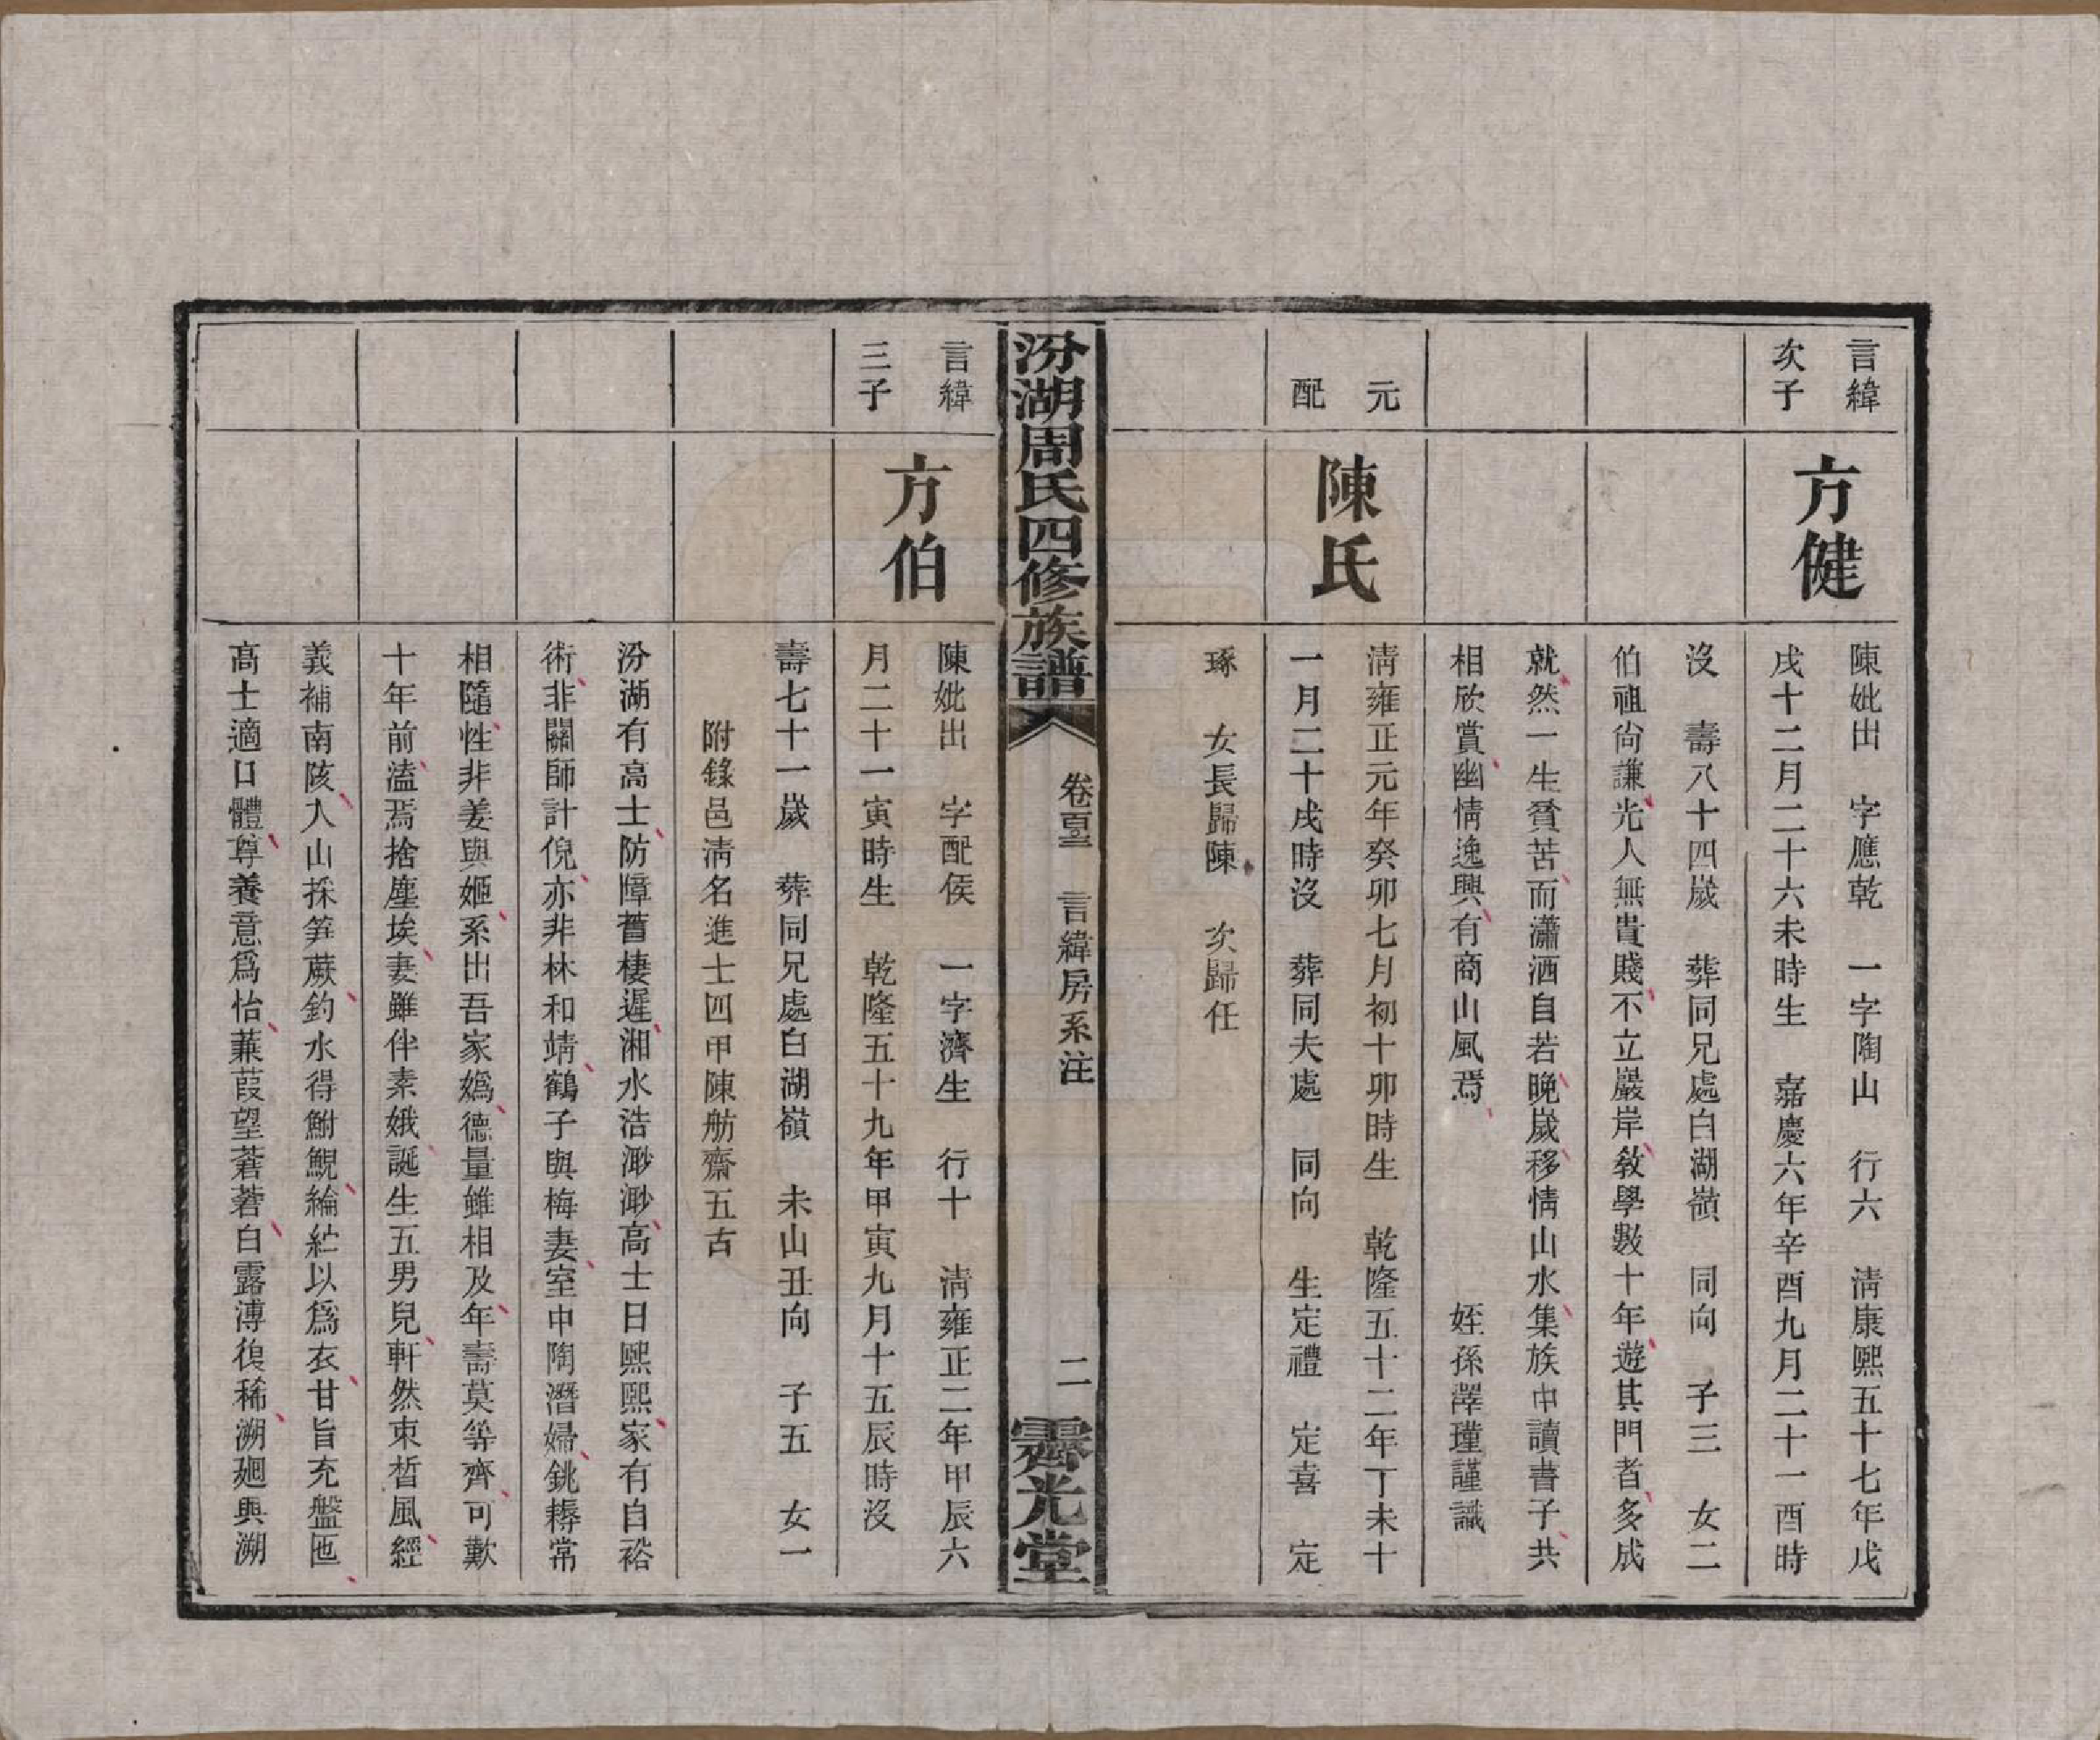 言緯
次子
方健
陳妣出　字應乾　一字陶山　行六　清康熙五十七年戊
戌十二月二十六未時生　嘉慶六年辛酉九月二十一酉時
沒　壽八十四歲　葬同兄處白湖嶺　同向　子三　女二
伯祖尙謙光人無貴賤不立巖岸敎學數十年遊其門者多成
就然一生貧苦而瀟洒自若晩歲移情山水集族中讀書子共
相欣賞幽情逸興有商山風焉　　　　　姪孫澤瑾謹識
元
配
陳氏
清雍正元年癸卯七月初十卯時生　乾隆五十二年丁未十
一月二十戌時沒　葬同夫處　同向　生定禮　定喜　定
琢　女長歸陳　次歸任
汾湖周氏四修族譜
卷百三　言緯房系注
二
霽光堂
言緯
三子
方伯
陳妣出　字配侯　一字濟生　行十　清雍正二年甲辰六
月二十一寅時生　乾隆五十九年甲寅九月十五辰時沒
壽七十一歲　葬同兄處白湖嶺　未山丑向　子五　女一
附錄邑清名進士四甲陳舫齋五古
汾湖有高士防障舊棲遲湘水浩渺渺高士日熙熙家有自裕
術非關師計倪亦非林和靖鶴子與梅妻室中陶潛婦銚耨常
相隨性非姜與姬系出吾家嬀德量雖相及年壽莫等齊可歎
十年前溘焉捨塵埃妻雖伴素娥誕生五男兒軒然束皙風經
義補南陔入山採筍蕨釣水得鮒鯢綸紝以爲衣甘旨充盤匜
高士適口體尊養意爲怡蒹葭望蒼蒼白露溥復稀溯廻與溯